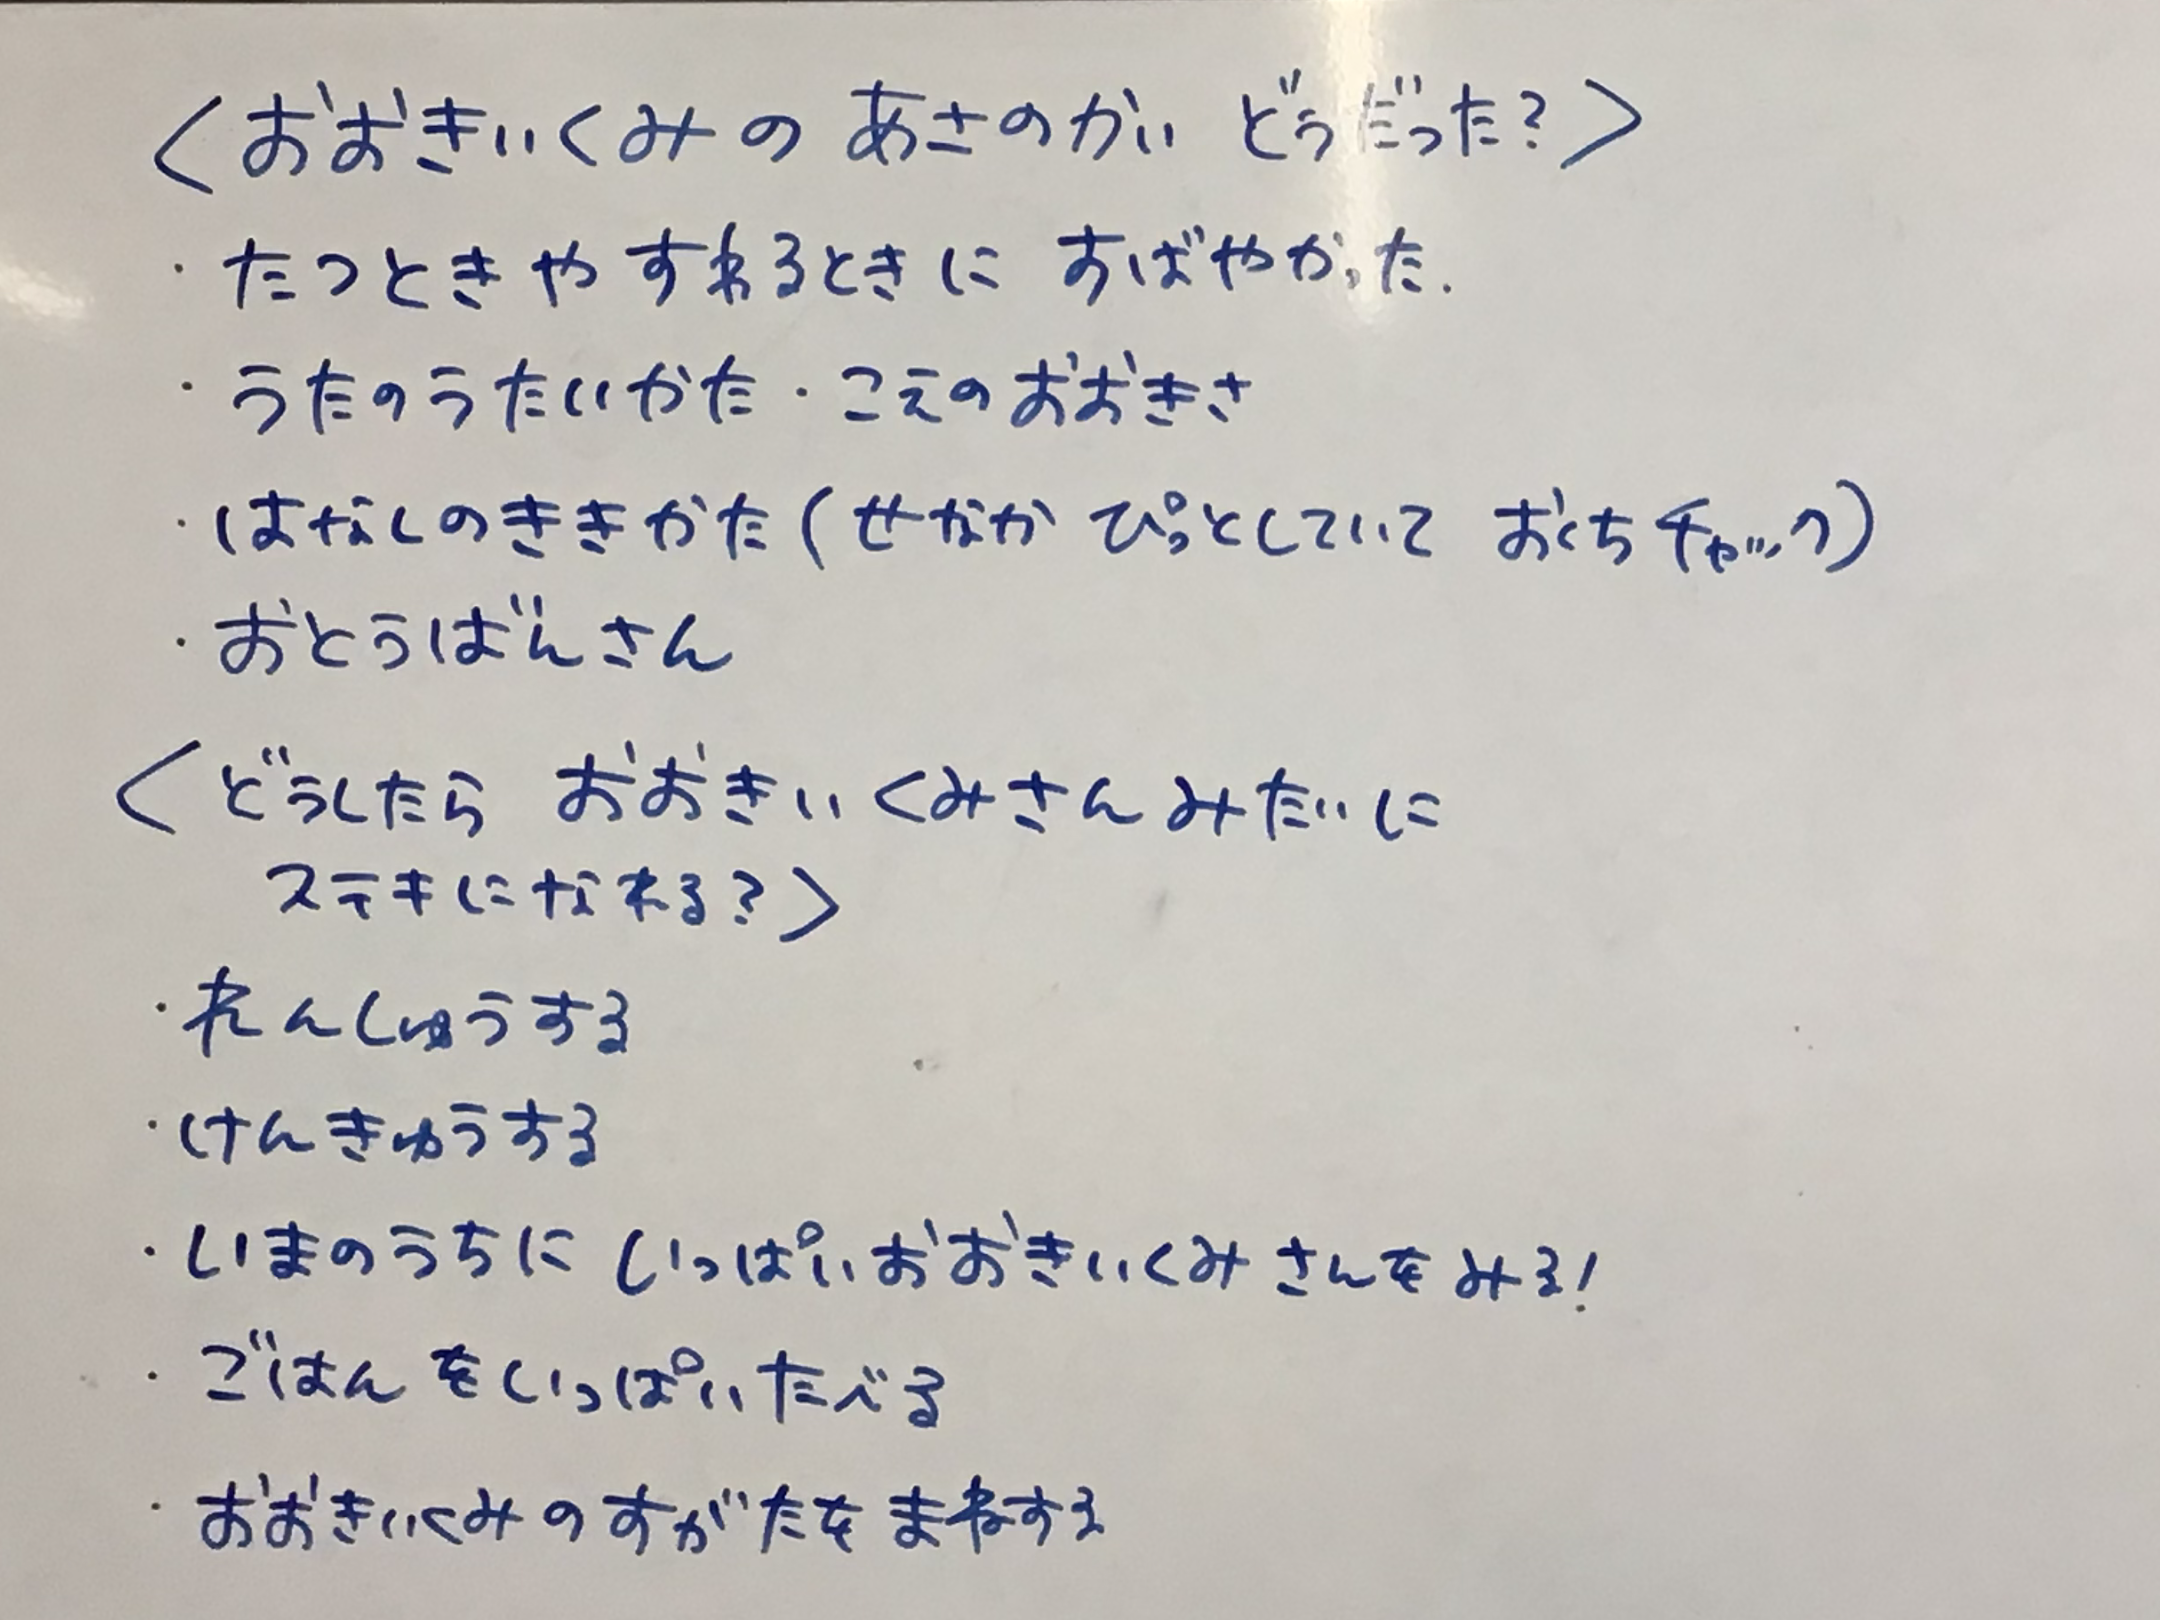 <おおきいくみの あさのかい どうだった?>
・たつときや すわるときに すばやかった.
・うたのうたいかた・こえのおおきさ
・はなしのききかた(せなか ぴっとしていて おくちチャック)
・おとうばんさん
<どうしたら おおきいくみさんみたいに
ステキになれる?>
・れんしゅうする
・けんきゅうする
・いまのうちに いっぱいおおきいくみさんをみる!
・ごはんをいっぱいたべる
・おおきいくみのすがたをまねする